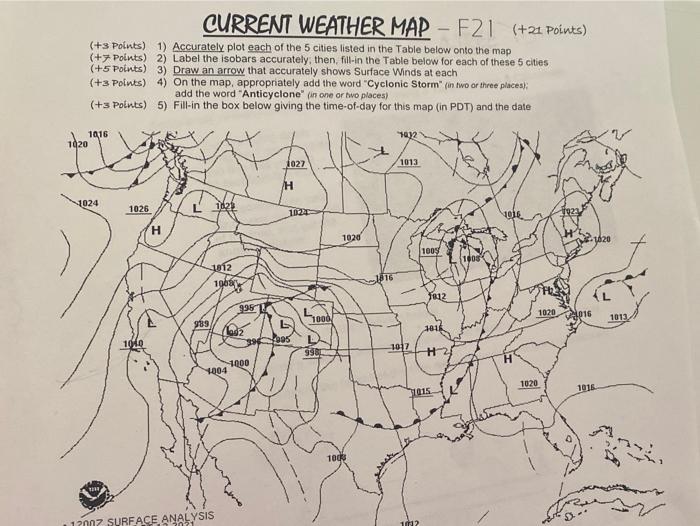 CURRENT WEATHER MAP – F21 (+21 Points)
(+3 Points) 1) Accurately plot each of the 5 cities listed in the Table below onto the map
(+7 Points) 2) Label the isobars accurately, then, fill-in the Table below for each of these 5 cities
(+5 Points) 3) Draw an arrow that accurately shows Surface Winds at each
(+3 Points) 4) On the map, appropriately add the word "Cyclonic Storm" (in two or three places);
add the word "Anticyclone" (in one or two places)
(+3 Points) 5) Fill-in the box below giving the time-of-day for this map (in PDT) and the date
1016
1012
1020
L
1027
1013
H
1024
1026
L
1024
1016
1023
H
H
1020
1020
1005
L
1008
1012
1008
1016
1012
L
996
L
L
1000
H
1020
1016
1013
L
989
992
L
L
996
995
998
1016
1017
H
H
1000
1004
1015
L
1020
1016
1008
1200Z SURFACE ANALYSIS
1012